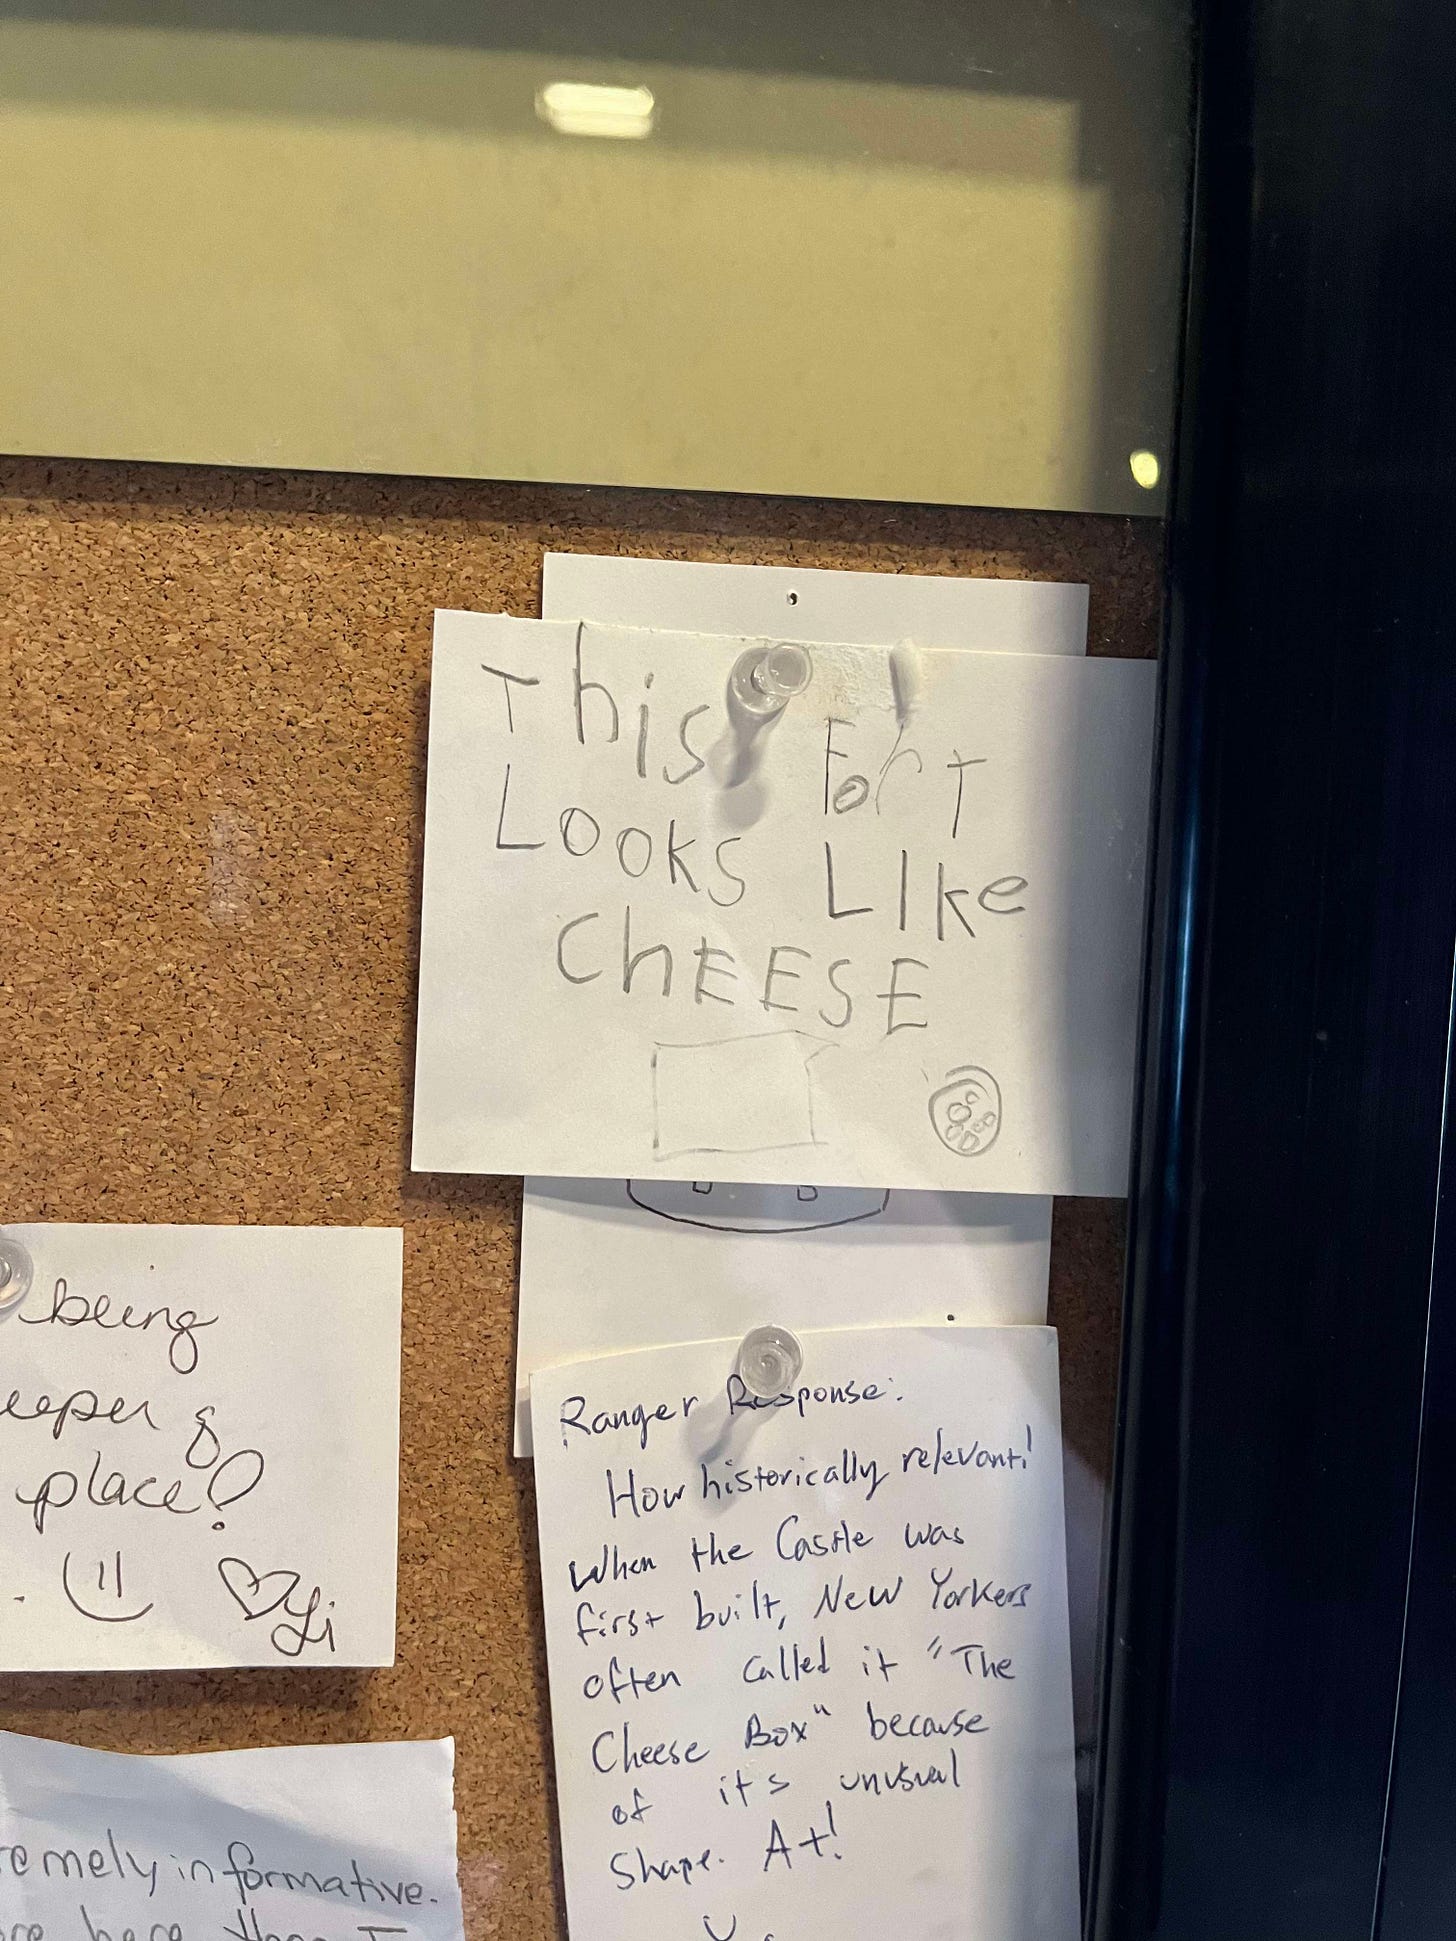 This Fort
Looks LIke
ChEESE
being
place!
Li
Ranger Response:
How historically relevant!
When the Castle was
first built, New Yorkers
often called it "The
Cheese Box" because
of it's unusual
Shape. A+!
informative.
here than I